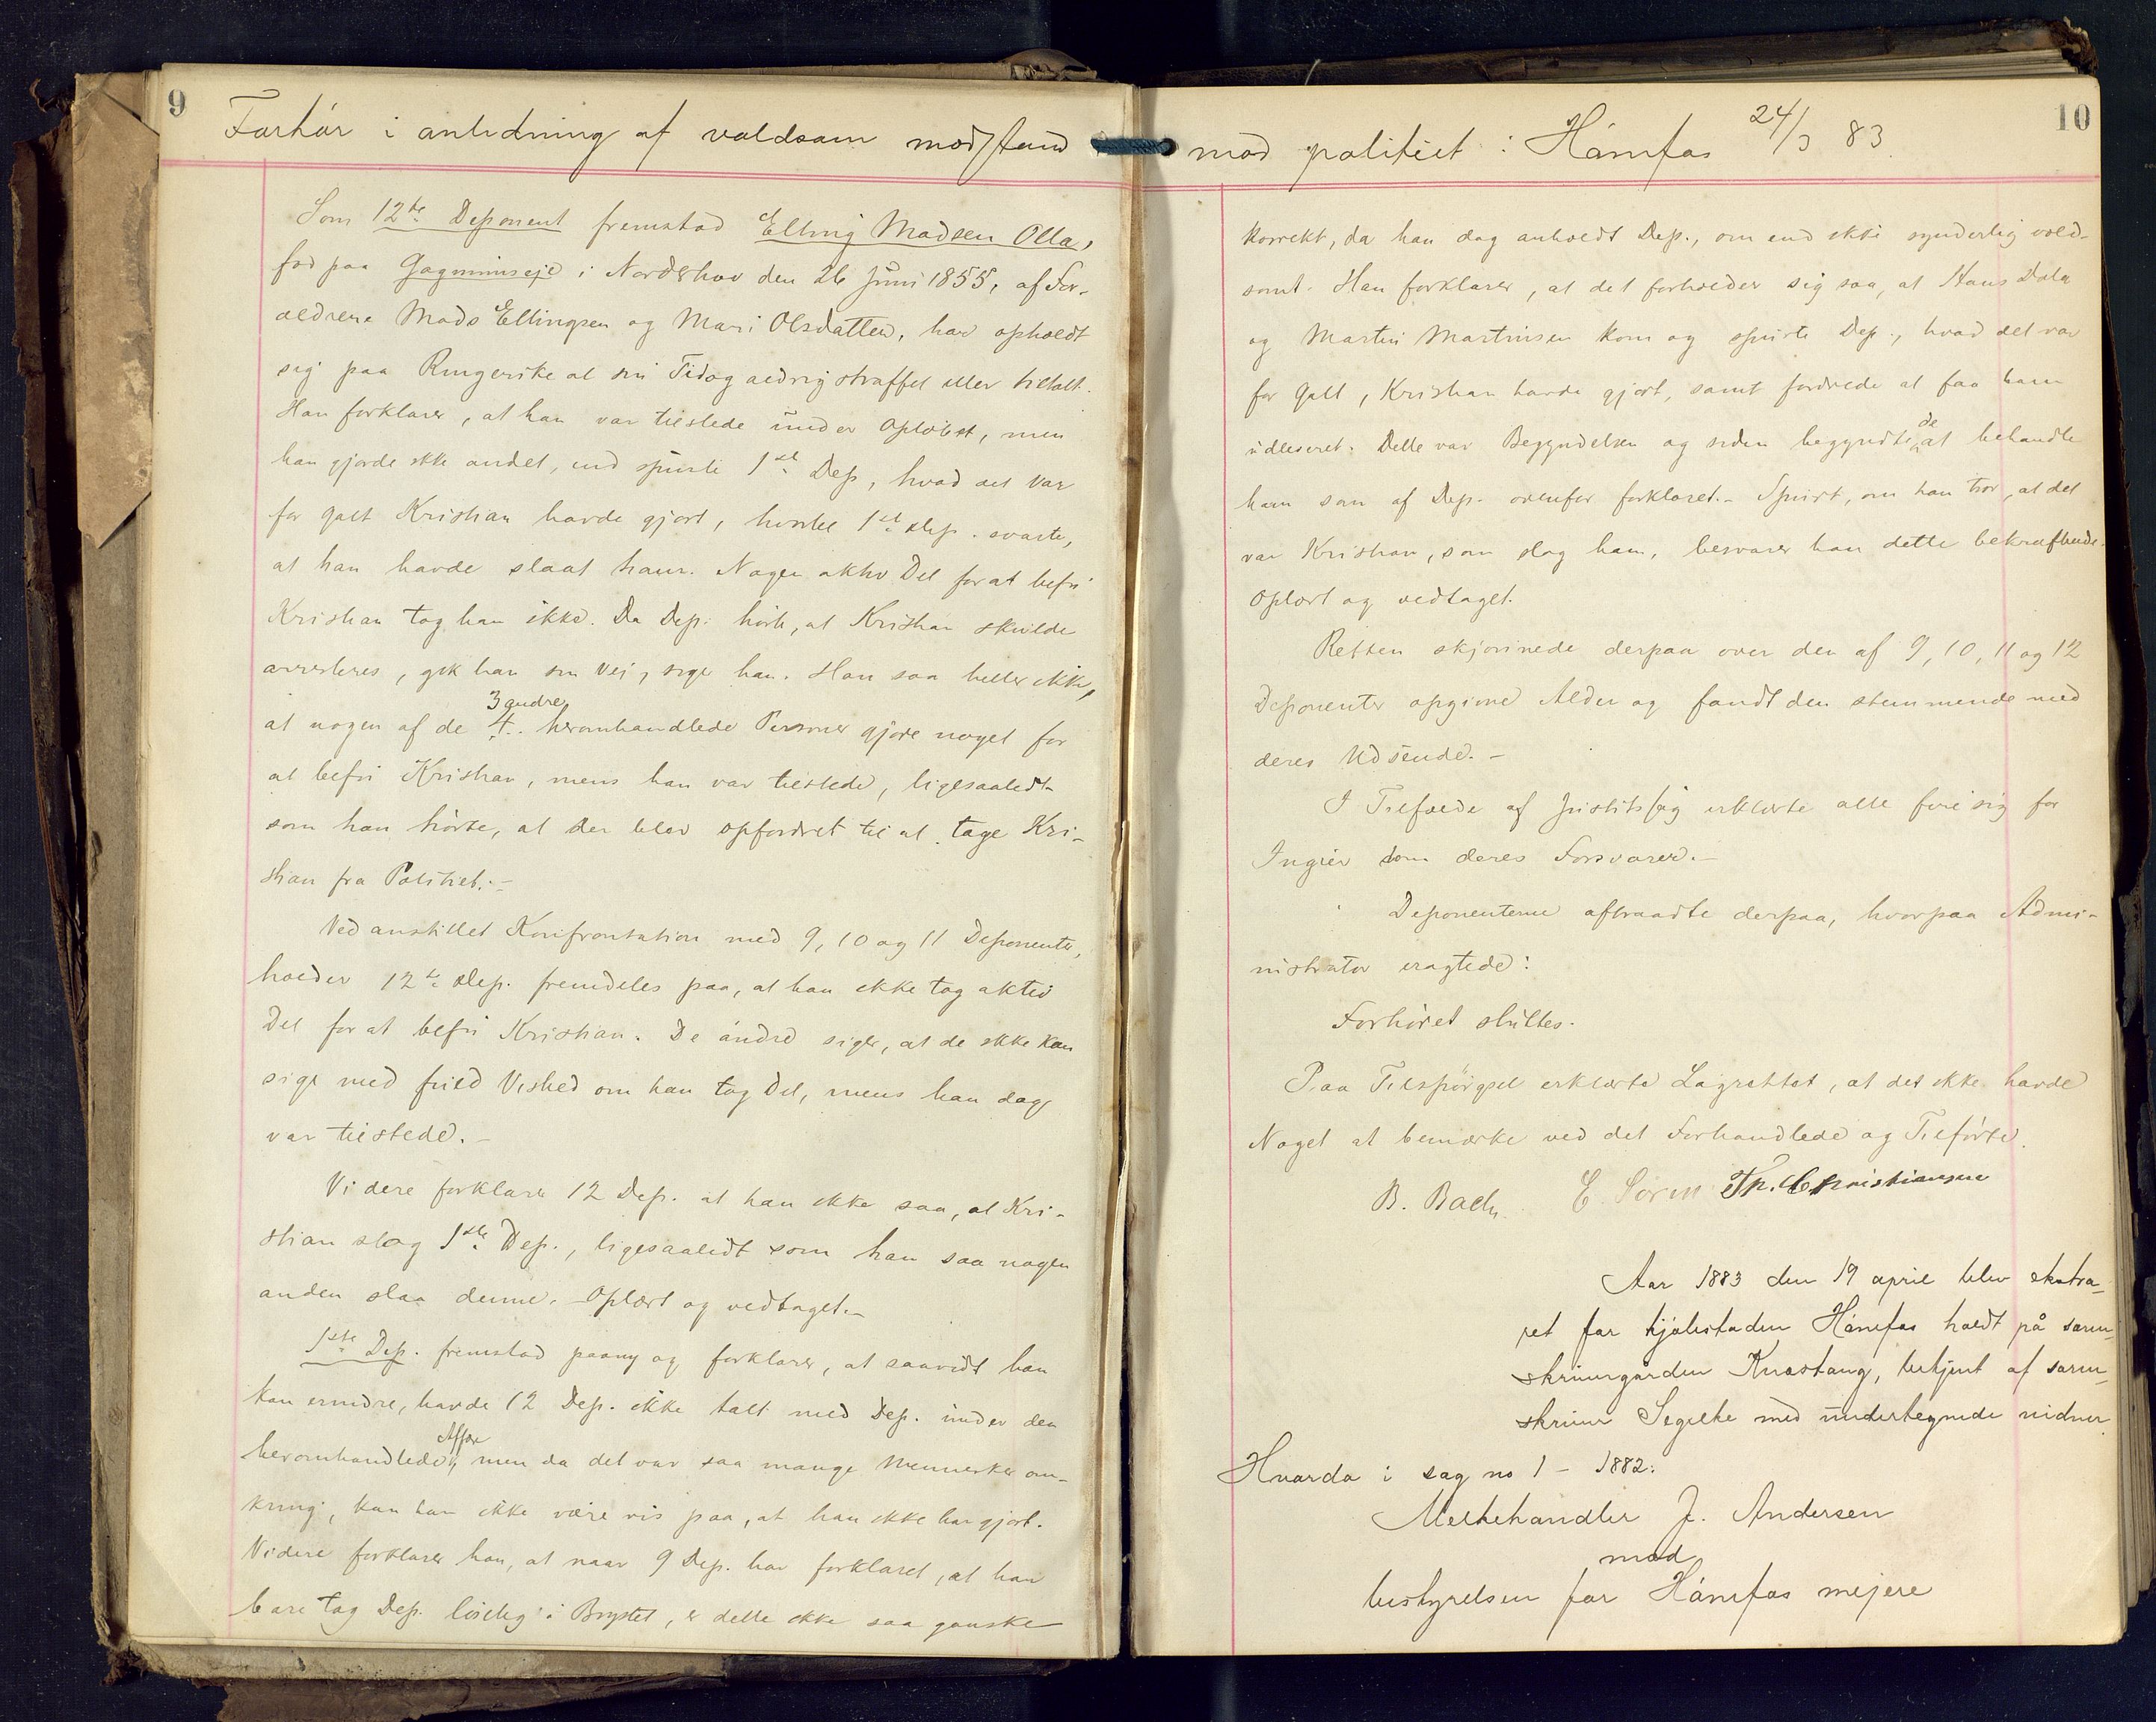 9
Forhør i anledning af voldsom modstand
Som 12te Deponent fremstod Elling Madsen Olla,
fød paa Gagnumseje i Norderhov den 26 Juni 1855, af For-
ældrene Mads Ellingsen og Mari Olsdatter, har opholdt
sig paa Ringerike al sin Tid og aldrig straffet eller tiltalt.
Han forklarer, at han var tilstede under Opløbet, men
han gjorde ikke andet, end spurte 1ste Dep, hvad det var
for galt Kristian havde gjort, hvortil 1ste Dep. svarte,
at han havde slaat ham. Nogen aktiv Del for at befri
Kristian tog han ikke. Da Dep. hørte, at Kristian skulde
arresteres, gik han sin Vei, siger han. Han saa heller ikke,
at nogen af de 4. 3 andre heromhandlede Personer gjøre noget for
at befri Kristian, mens han var tilstede, ligesaalidt
som han hørte, at der blev opfordret til at tage Kri-
stian fra Politiet.-
Ved anstillet Konfrontation med 9, 10 og 11 Deponenter,
holder 12te Dep. fremdeles paa, at han ikke tog aktiv
Del for at befri Kristian. De andre siger, at de ikke kan
sige med fuld Vished om han tog Del, mens han dog
var tilstede.-
Videre forklarer 12 Dep. at han ikke saa, at Kri-
stian slog 1ste Dep., ligesaalidt som han saa nogen
anden slaa denne. Oplæst og vedtaget.-
1ste Dep. fremstod paany og forklarer, at saavidt han
kan erindre, havde 12 Dep. ikke talt med Dep. under den
heromhandlede Affære, men da det var saa mange Mennesker om-
kring, kan han ikke være vis paa, at han ikke har gjort.
Videre forklarer han, at naar 9 Dep. har forklaret, at han
bare tog Dep. løselig i Brystet, er dette ikke saa ganske
10
mod politiet i Hønefos 24/3 83.
korrekt, da han dog anholdt Dep., om end ikke synderlig vold-
somt. Han forklarer, at det forholder sig saa, at Hans Dala
og Martin Martinsen kom og spurte Dep., hvad det var
for galt, Kristian havde gjort, samt fordrede at faa ham
udleveret. Dette var Begyndelsen og siden begyndte de at behandle
ham som af Dep. ovenfor forklaret.- Spurt, om han tror, at det
var Kristian, som slog ham, besvarer han dette bekræftende.
Oplæst og vedtaget.
Retten skjønnede derpaa over den af 9, 10, 11 og 12
Deponenter opgivne Alder og fandt den stemmende med
deres Udseende.-
I Tilfælde af Justitssag erklærte alle fire sig for
Ingier som deres Forsvarer.-
Deponenterne aftraadte derpaa, hvorpaa Admi-
nistrator eragtede:
Forhøret sluttes.
Paa Tilspørgsel erklærte Lagrettet, at det ikke havde
Noget at bemærke ved det Forhandlede og Tilførte.
B. Bach E. Sørum Th. Christiansen
Aar 1883 den 19 april blev ekstra-
ret for kjøbstaden Hønefos holdt på soren-
skrivergården Knastang, betjent af soren-
skriver Segelke med undertegnede vidner.
Hvorda i sag no 1 - 1882:
Melkehandler J. Andersen
mod
bestyrelsen for Hønefos mejeri